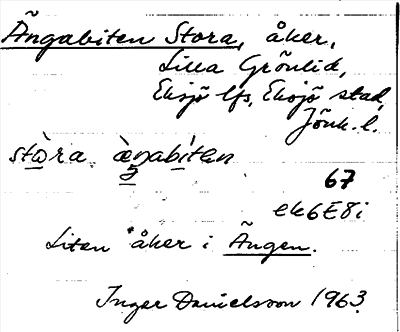 Ängabiten Stora, åker,
Lilla Grönlid,
Eksjö lfs, Eksjö stad,
Jönk. l.
stò̱ra æ̀ŋabìten
67
ek6E8i
Liten åker i Ängen.
Inger Danielsson 1963.